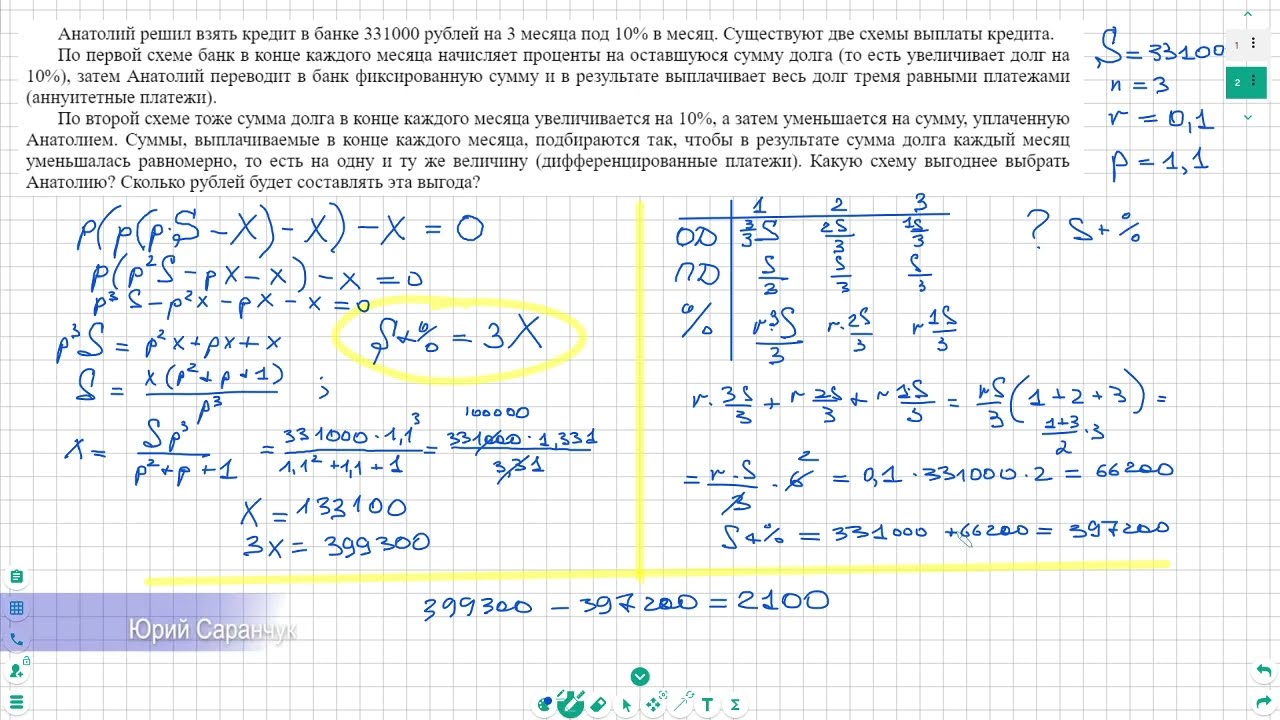 Анатолий решил взять кредит в банке 331000 рублей на 3 месяца под 10% в месяц. Существуют две схемы выплаты кредита.
По первой схеме банк в конце каждого месяца начисляет проценты на оставшуюся сумму долга (то есть увеличивает долг на
10%), затем Анатолий переводит в банк фиксированную сумму и в результате выплачивает весь долг тремя равными платежами
(аннуитетные платежи).
По второй схеме тоже сумма долга в конце каждого месяца увеличивается на 10%, а затем уменьшается на сумму, уплаченную
Анатолием. Суммы, выплачиваемые в конце каждого месяца, подбираются так, чтобы в результате сумма долга каждый месяц
уменьшалась равномерно, то есть на одну и ту же величину (дифференцированные платежи). Какую схему выгоднее выбрать
Анатолию? Сколько рублей будет составлять эта выгода?
S = 33100
n = 3
r = 0,1
p = 1,1
1
2
p(p(p·S − X) − X) − X = 0
p(p²S − pX − X) − X = 0
p³S − p²X − pX − X = 0
p³S = p²X + pX + X
S + % = 3X
S = X(p² + p + 1) / p³ ;
X = Sp³ / (p² + p + 1) = 331000 · 1,1³ / (1,1² + 1,1 + 1) = 331000 · 1,331 / 3,31
100000
X = 133100
3X = 399300
1 2 3
ОД 3/3 S 2S/3 1S/3
ПД S/3 S/3 S/3
% r·3S/3 r·2S/3 r·1S/3
? S + %
r · 3S/3 + r · 2S/3 + r · 1·S/3 = rS/3 (1 + 2 + 3) =
(1+3)/2 · 3
= r·S/3 · 6 2 = 0,1 · 331000 · 2 = 66200
S + % = 331000 + 66200 = 397200
399300 − 397200 = 2100
Юрий Саранчук
T Σ